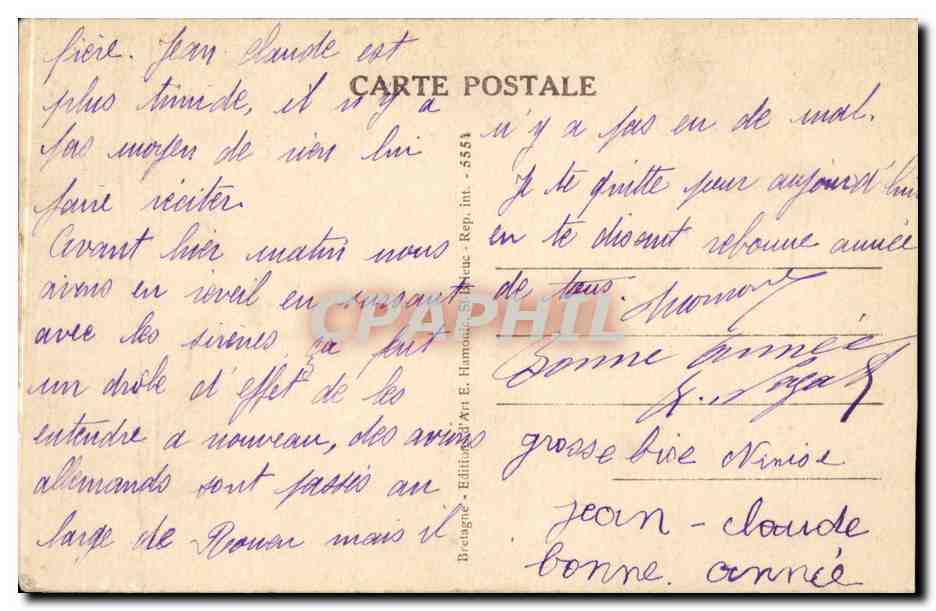 fière. Jean Claude est
plus timide, il n'y a
pas moyen de rien lui
faire réciter.
Avant hier matin nous
avons eu réveil en sursaut
avec les sirènes, ça fait
un drôle d'effet de les
entendre a nouveau, des avions
allemands sont passés au
large de Rouen mais il
CARTE POSTALE
n'y a pas eu de mal.
Je te quitte pour aujourd'hui
en te disant rebonne année
de tous.
Bonne année
grosse bise Ninise
jean - claude
bonne. année
Bretagne - Editions d'Art E. Hamonic, St-Brieuc - Rep. int. - 5551
CPAPHIL